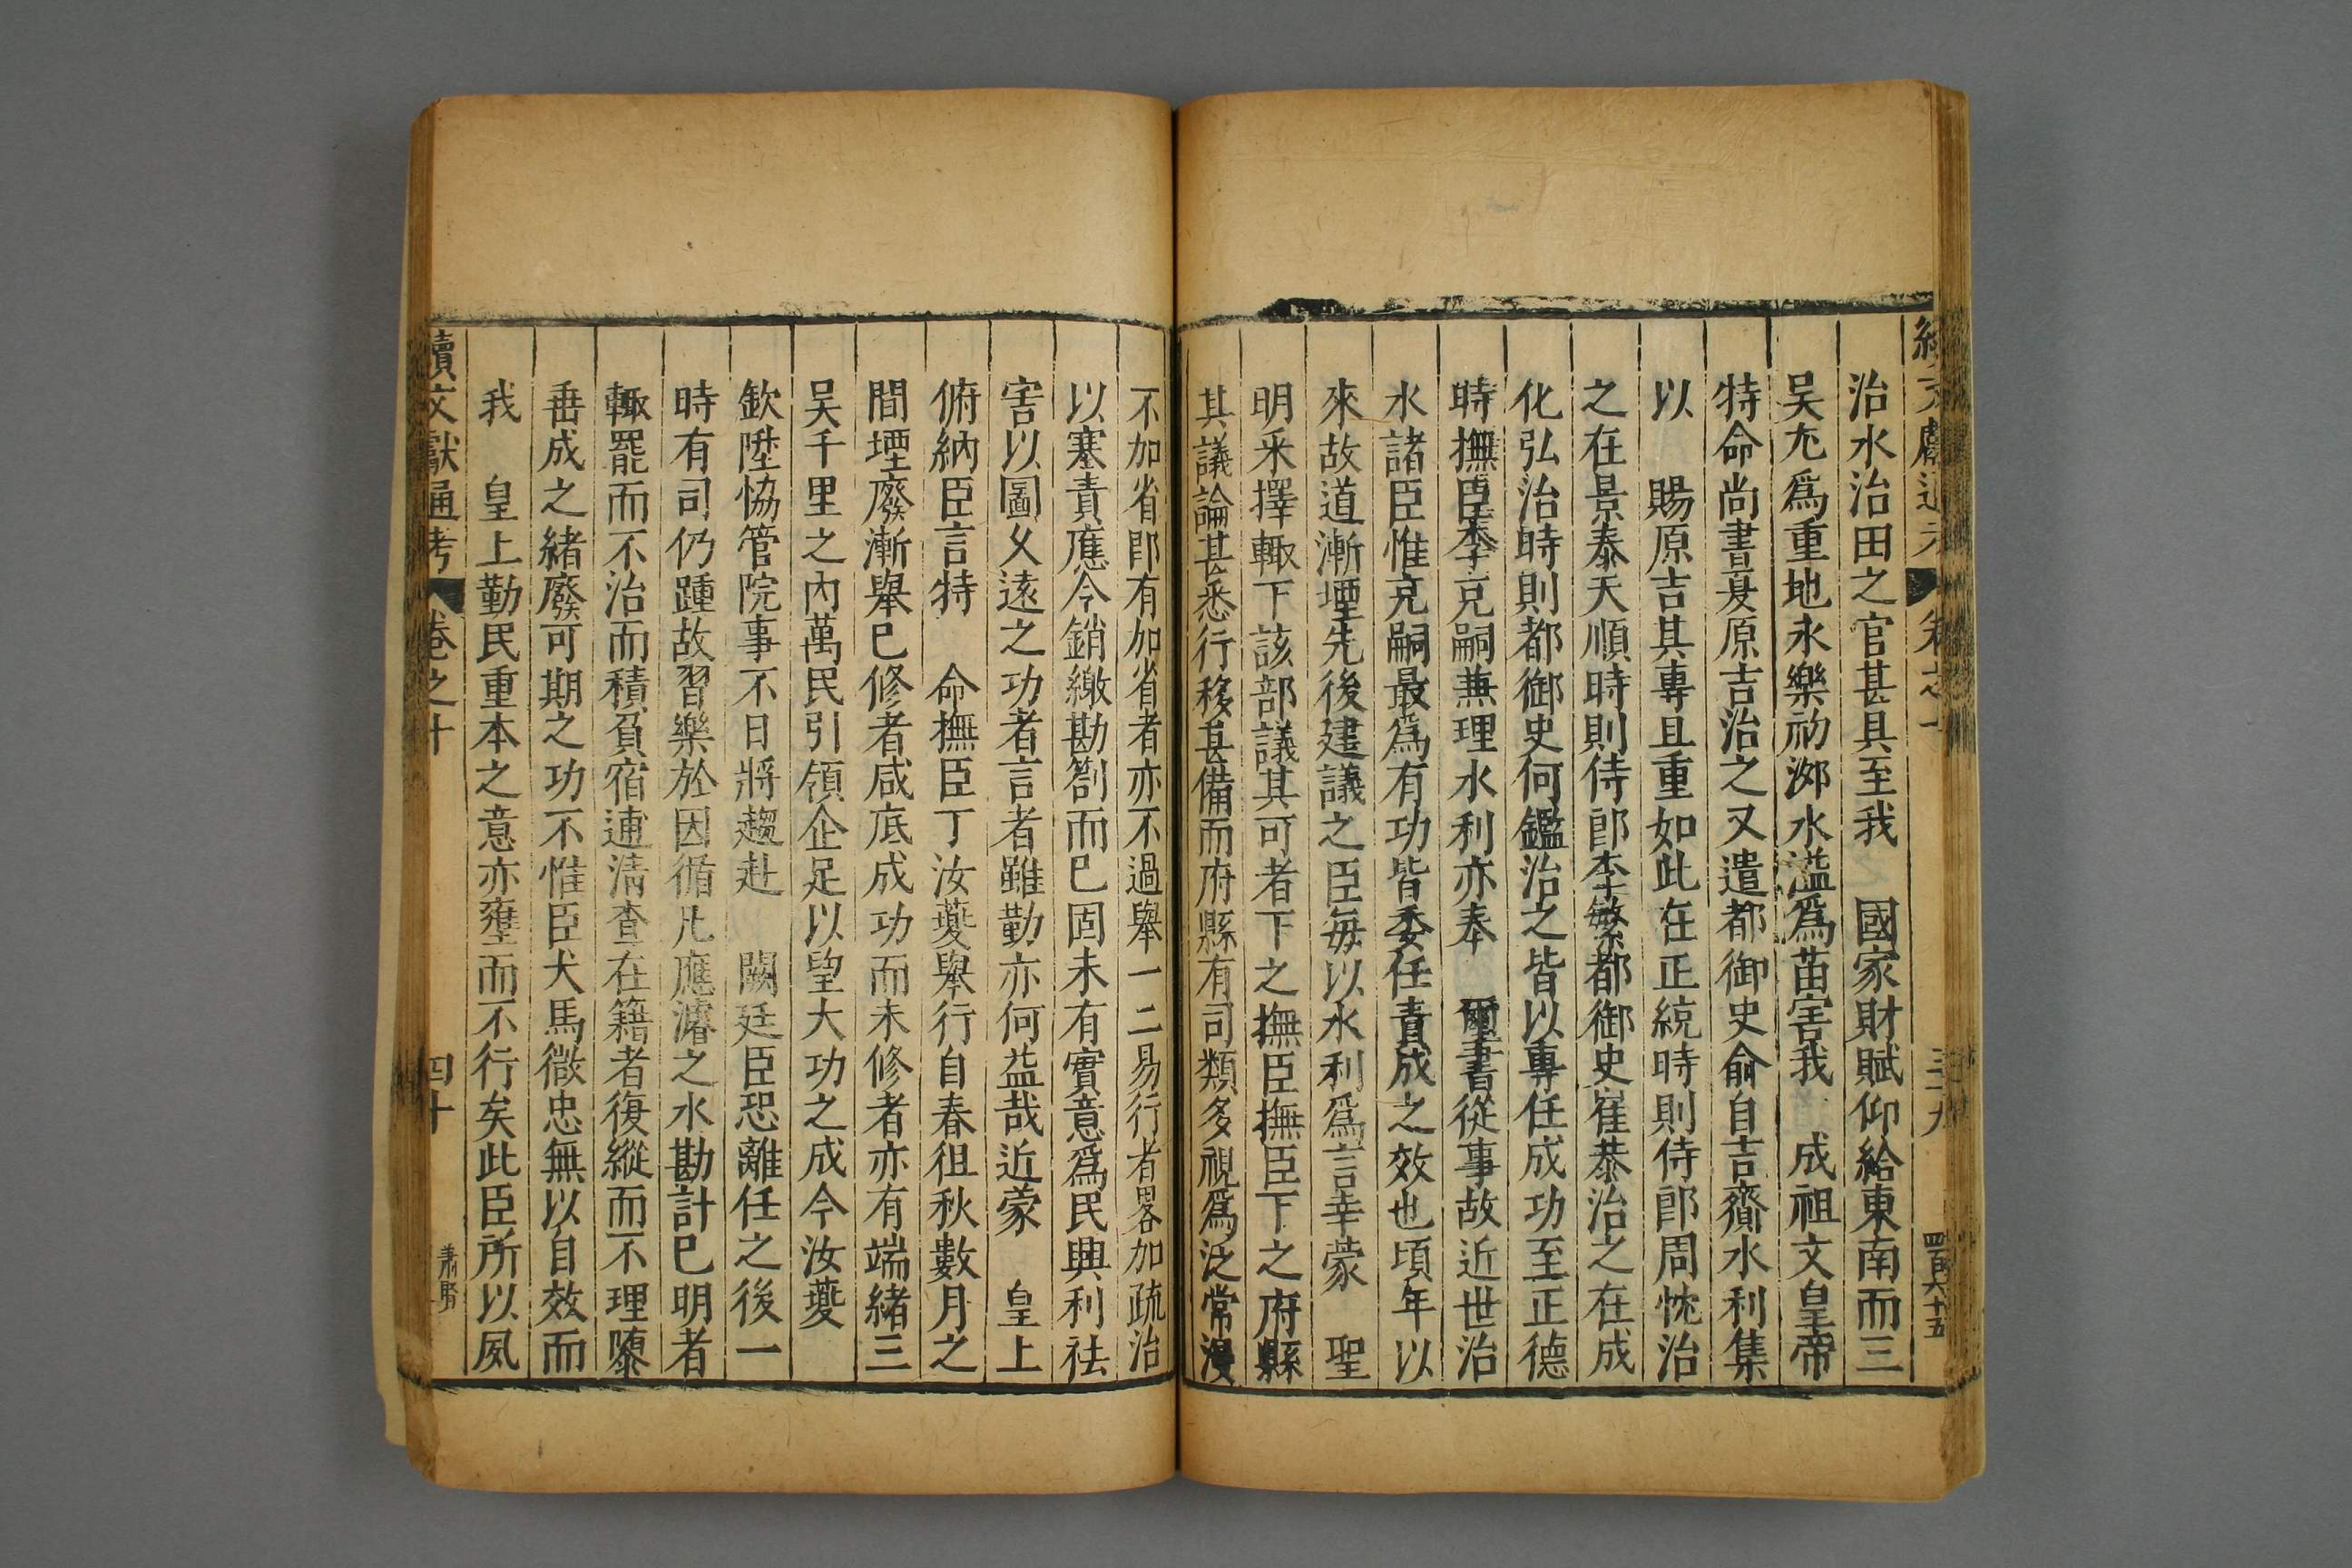 治水治田之官甚具至我　國家財賦仰給東南而三
吴尤爲重地永樂初浙水溢爲苗害我　成祖文皇帝
特命尚書夏原吉治之又遣都御史俞自吉齎水利集
以　賜原吉其專且重如此在正統時則侍郎周忱治
之在景泰天順時則侍郎李敏都御史崔恭治之在成
化弘治時則都御史何鑑治之皆以專任成功至正德
時撫臣李克嗣兼理水利亦奉　璽書從事故近世治
水諸臣惟克嗣最爲有功皆委任責成之效也頃年以
來故道漸堙先後建議之臣每以水利爲言幸蒙　聖
明采擇輙下該部議其可者下之撫臣撫臣下之府縣
其議論甚悉行移甚備而府縣有司類多視爲泛常漫
不加省即有加省者亦不過舉一二易行者畧加疏治
以塞責應今銷繳勘劄而已固未有實意爲民興利祛
害以圖乆遠之功者言者雖勤亦何益哉近蒙　皇上
俯納臣言特　命撫臣丁汝夔舉行自春徂秋數月之
間堙廢漸舉已修者咸底成功而未修者亦有端緒三
吴千里之内萬民引領企足以望大功之成今汝夔
欽陞恊管院事不日將趨赴　闕廷臣恐離任之後一
時有司仍踵故習樂於因循凡應濬之水勘計已明者
輙罷而不治而積負宿逋清查在籍者復縱而不理隳
垂成之緒廢可期之功不惟臣犬馬微忠無以自效而
我　皇上勤民重本之意亦壅而不行矣此臣所以夙
續文獻通考　卷之十　四十